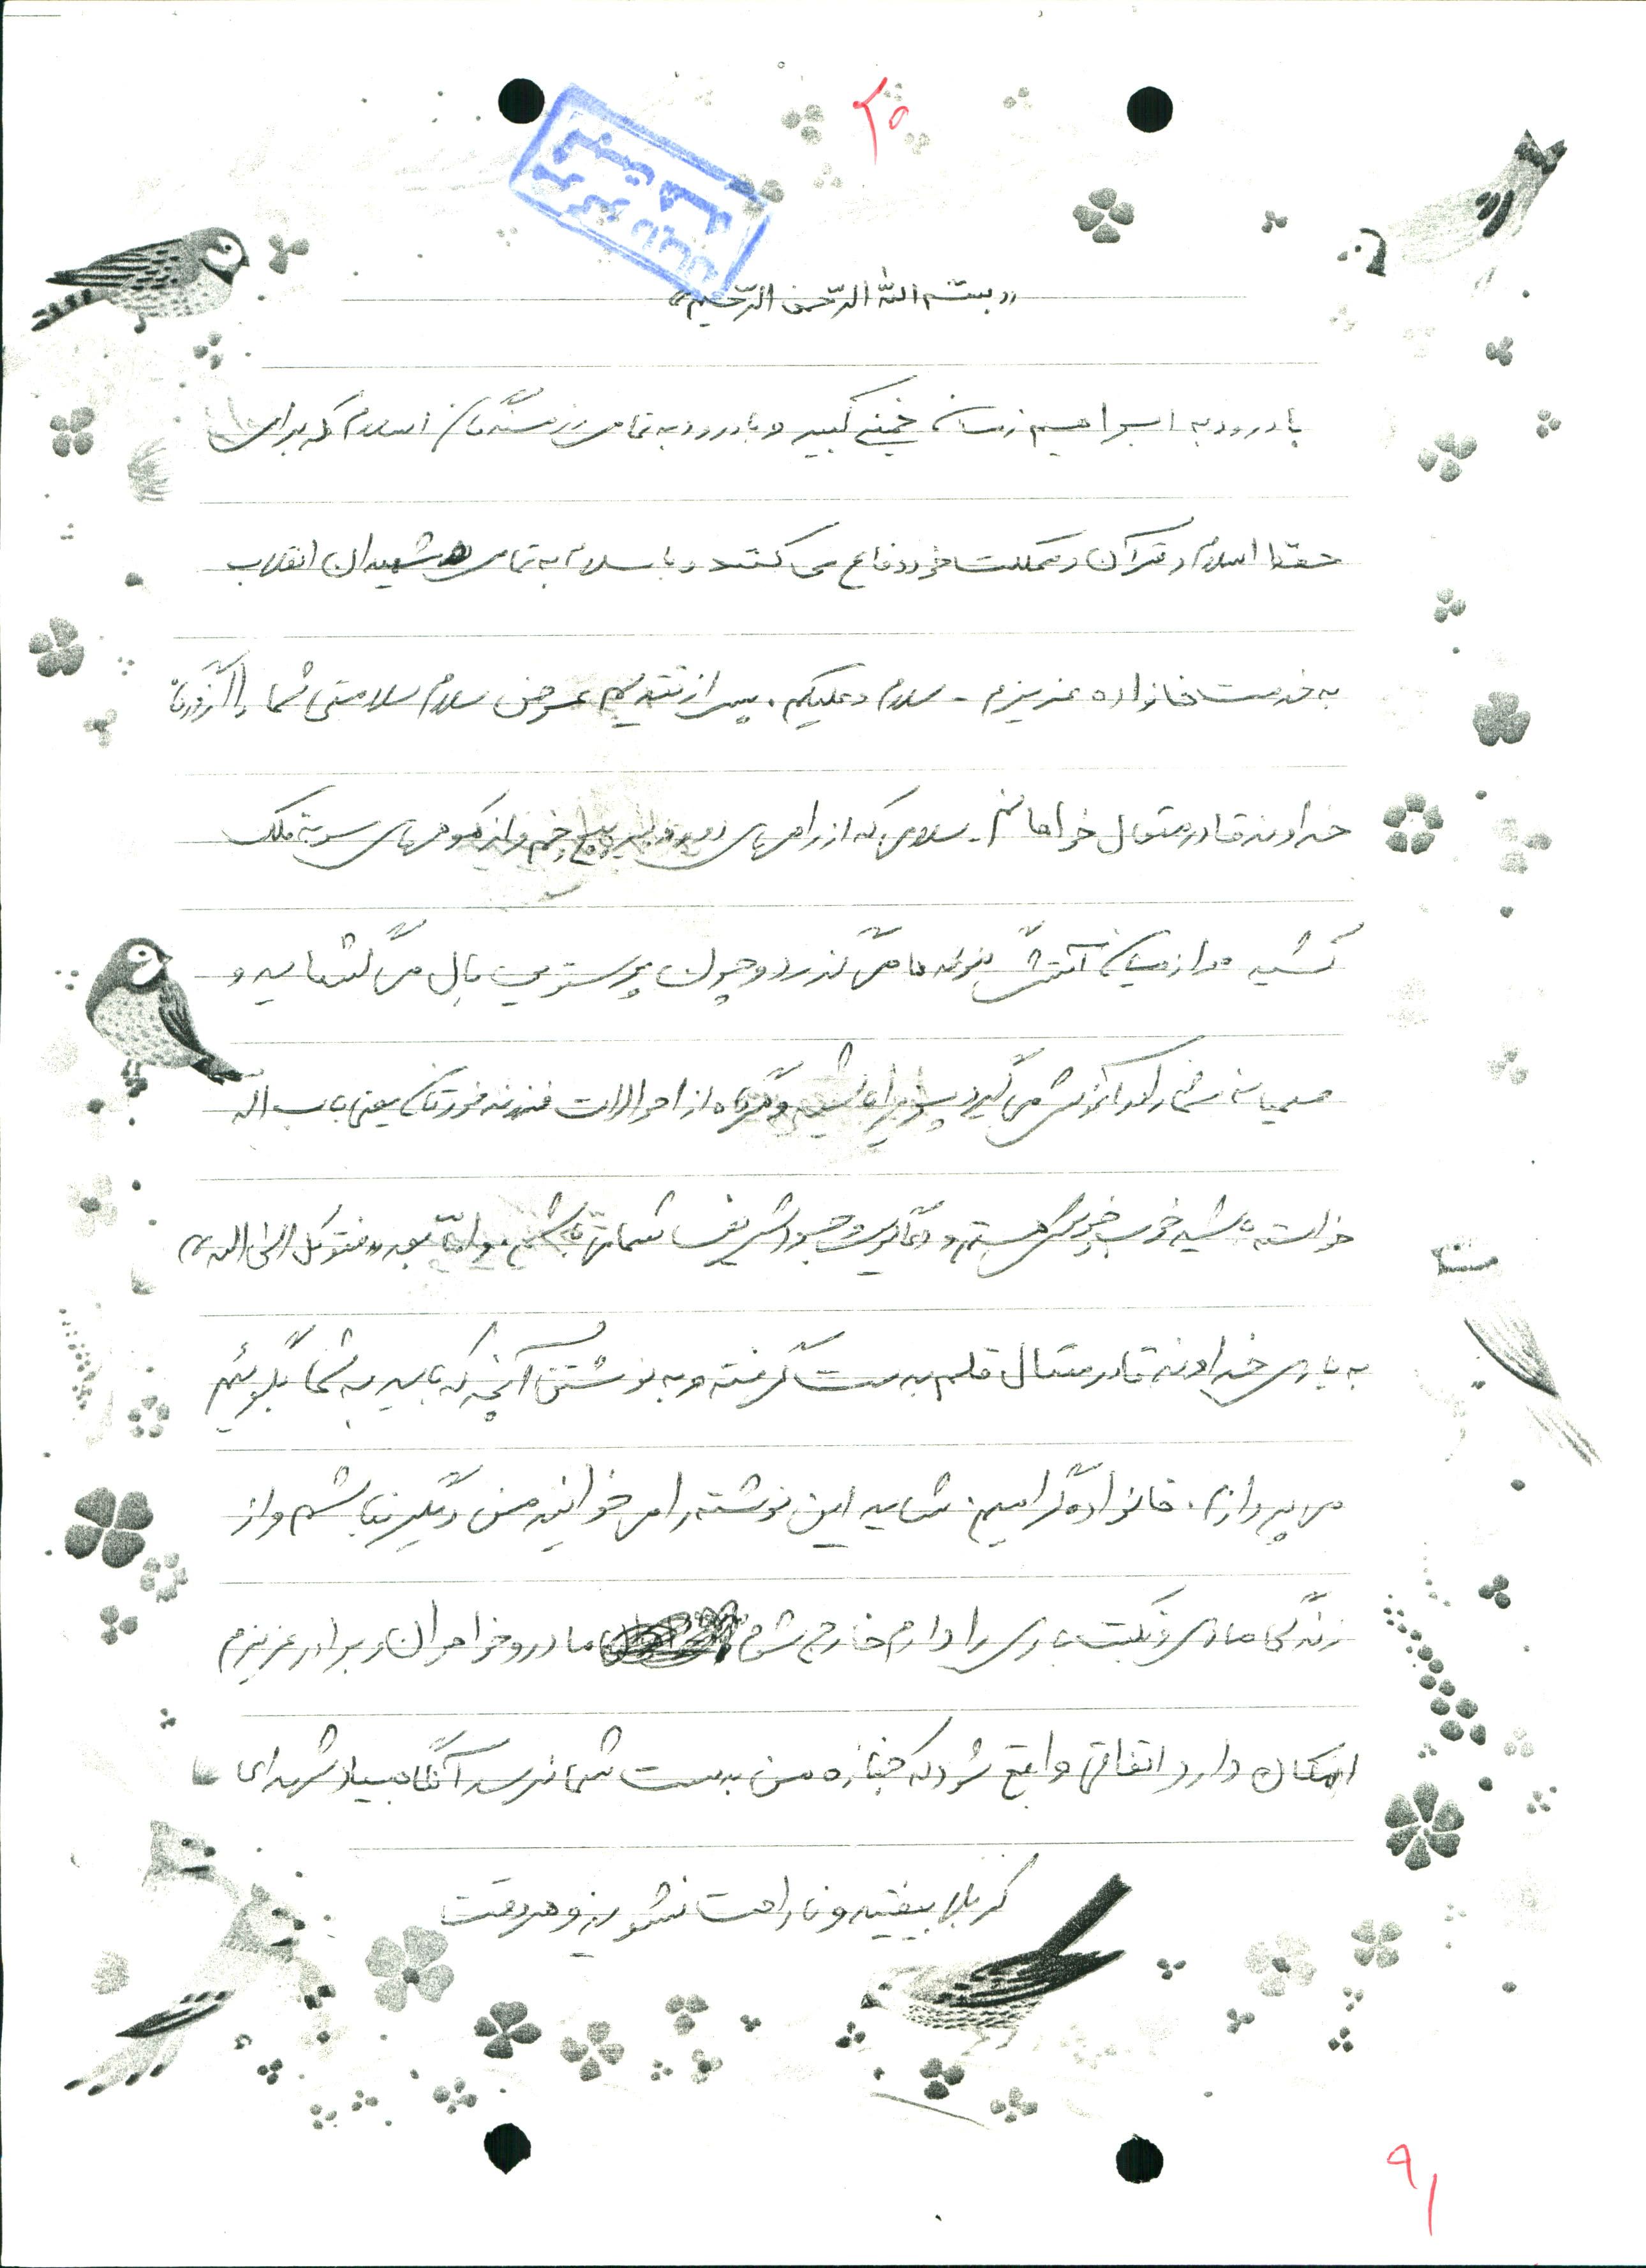 ۲۰
«بسم الله الرحمن الرحیم»
با درود به ابراهیم زمان خمینی کبیر و با درود به تمامی رزمندگان اسلام که برای
حفظ اسلام و قرآن و مملکت خود دفاع می کنند و با سلام به تمامی شهیدان انقلاب
به خدمت خانواده عزیزم - سلام و علیکم. پس از تقدیم عرض سلام سلامتی شما را از
خداوند قادر متعال خواهانم. سلامی که از راههای پیچ و خم و از کوههای سر به فلک
کشیده و از میان آتش می گذرد و چون پرستویی بال می گشاید و
صمیمانه شما را در آغوش می گیرد و اگر از احوالات فرزند خودتان یعنی باب اله
خواسته باشید خوب هستم و شما و اما بعد «متوکل الی الله»
به یاری خداوند قادر متعال قلم بدست گرفته و به نوشتن آنچه که باید به شما بگویم
می پردازم. خانواده گرامیم. شاید این نوشته را می خوانید من دیگر نباشم و از
زندگی مادی و نکبت باری را دارم خارج شوم مادر و خواهران و برادر عزیزم
امکان دارد اتفاقی واقع شود که جنازه من بدست شما نرسد آنگاه بیاد شهدای
کربلا بیفتید و ناراحت نشوید و هر وقت
۹۱